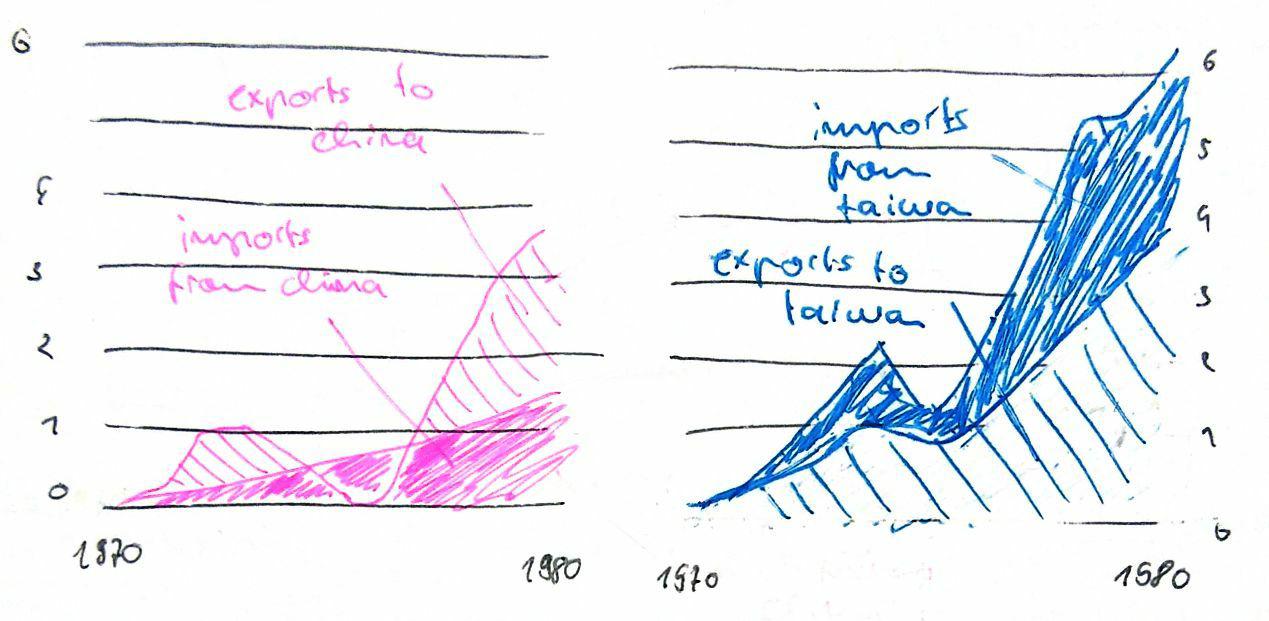 6
exports to
china
4
imports
from china
3
2
1
0
1970
1980
imports
from
taiwan
exports to
taiwan
6
5
4
3
2
1
0
1970
1980